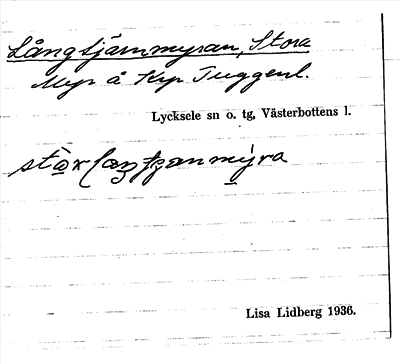 Långtjärnmyran, Stora
Myr å Krp Tuggenl.
Lycksele sn o. tg, Västerbottens l.
Lisa Lidberg 1936.